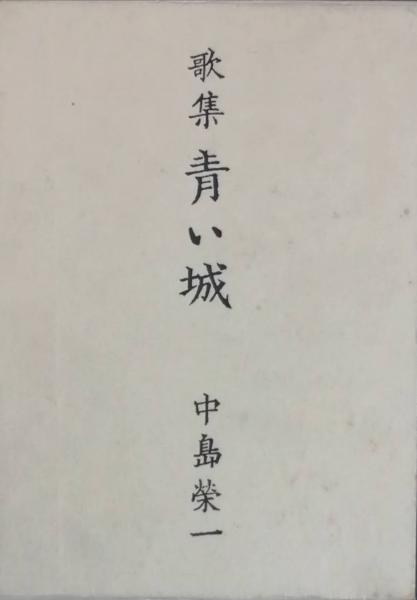 歌集 青い城 中島榮一